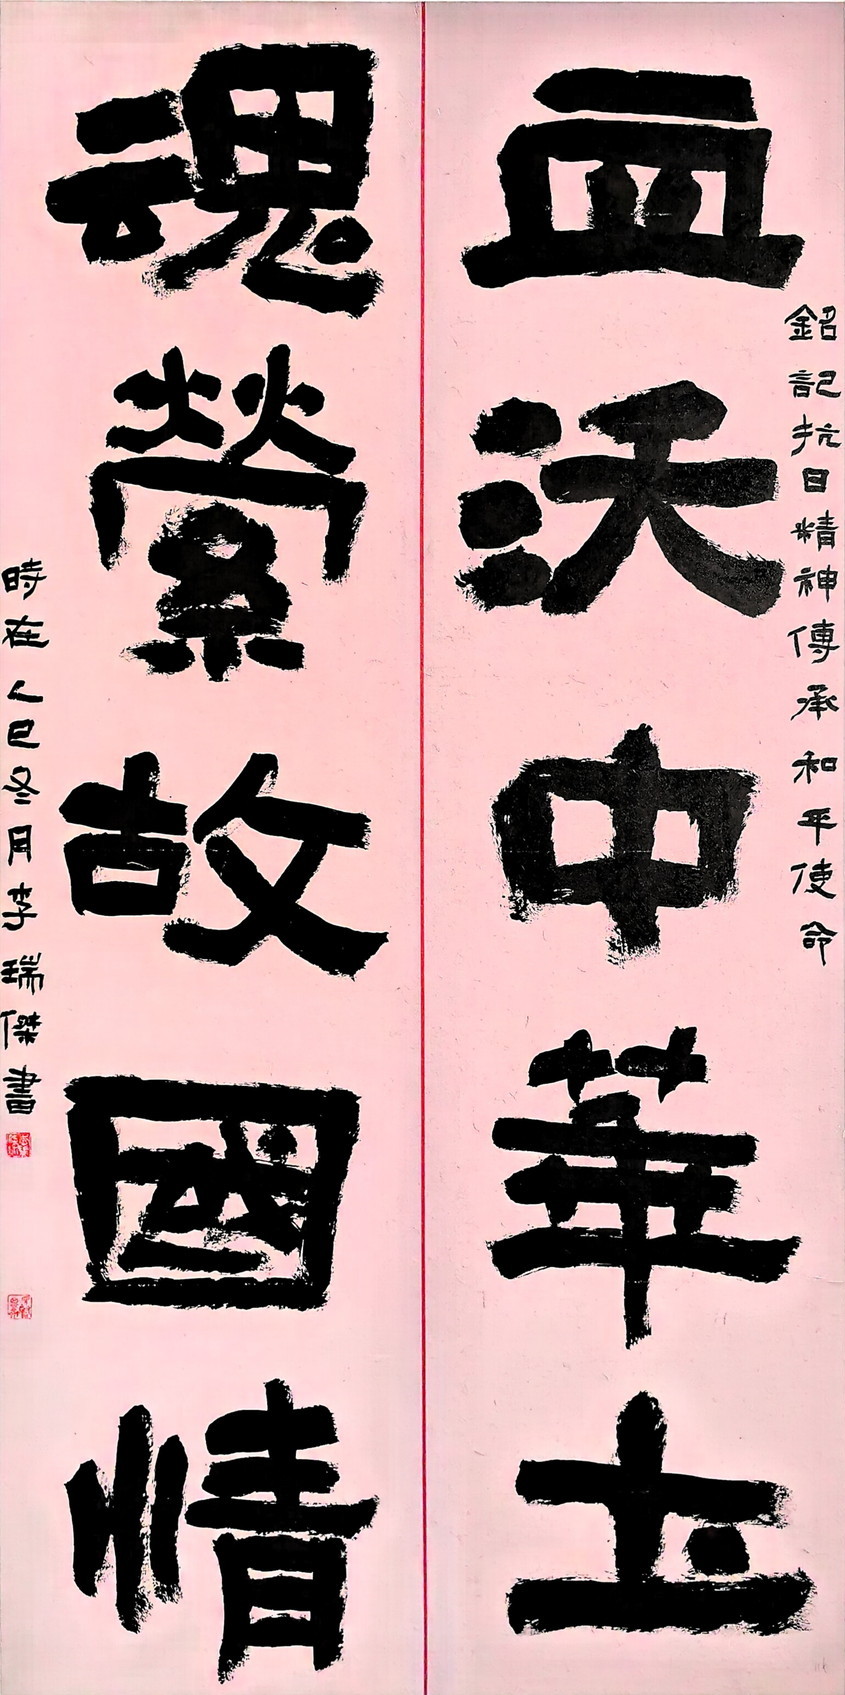 銘記抗日精神傳承和平使命
血沃中華土
魂縈故國情
時在乙巳冬月李瑞傑書